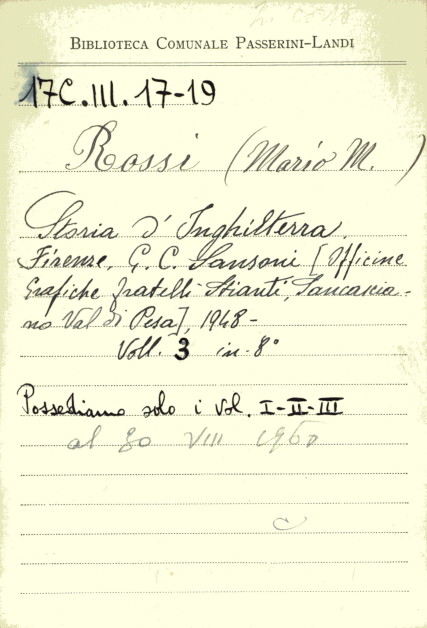 BIBLIOTECA COMUNALE PASSERINI-LANDI
17C.III.17-19
Rossi (Mario M.)
Storia d'Inghilterra.
Firenze, G. C. Sansoni [Officine
Grafiche fratelli Stianti, Sancascia-
no Val di Pesa], 1948-
Voll. 3 in-8°
Possediamo solo i vol. I-II-III
al 30 VIII 1960